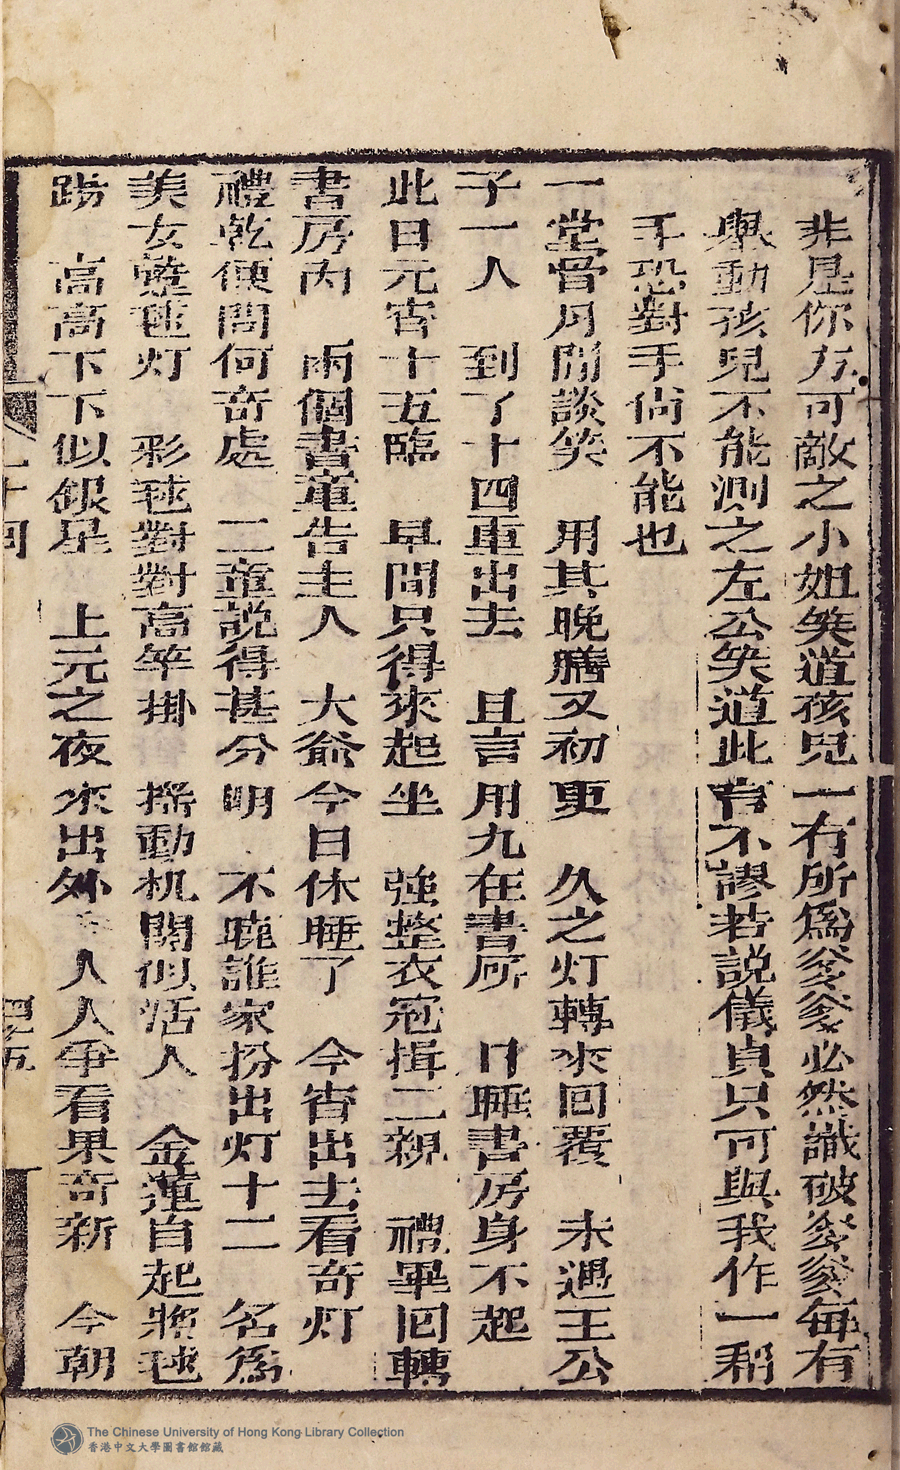 非是你方可敵之小姐笑道孩兒一有所為爹爹必然識破爹爹每有
舉動孩兒不能測之左公笑道此言不謬若說儀貞只可與我作一稱
手恐對手尙不能也
一堂骨月閒談笑　用其晚膳又初更　久之灯轉來回覆　未遇王公
子一人　到了十四重出去　且言用九在書所　日睡書房身不起
此日元宵十五臨　早間只得來起坐　強整衣冠揖二親　禮畢回轉
書房內　兩個書童告主人　大爺今日休睡了　今宵出去看奇灯
禮乾便問何奇處　二童說得甚分明　不曉誰家扮出灯十二　名為
美女蓮毬灯　彩毬對對高竿掛　搖動机關似活人　金蓮自起將毬
踢　高高下下似銀星　上元之夜來出外　人人爭看果奇新　今朝
十回
四十五
The Chinese University of Hong Kong Library Collection
香港中文大學圖書館館藏